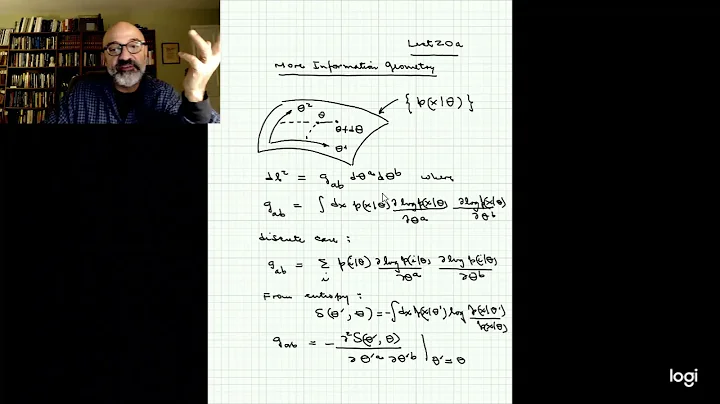 Lect 20a
More Information Geometry
{ p(x|θ) }
θ²
θ
θ+dθ
θ¹
dℓ² = g_ab dθ^a dθ^b where
g_ab = ∫ dx p(x|θ) ∂log p(x|θ)/∂θ^a ∂log p(x|θ)/∂θ^b
discrete case :
g_ab = Σ_i p(i|θ) ∂log p(i|θ)/∂θ^a ∂log p(i|θ)/∂θ^b
From entropy :
S(θ', θ) = -∫ dx p(x|θ') log p(x|θ')/p(x|θ)
g_ab = - ∂²S(θ', θ)/∂θ'^a ∂θ'^b |θ'=θ
logi